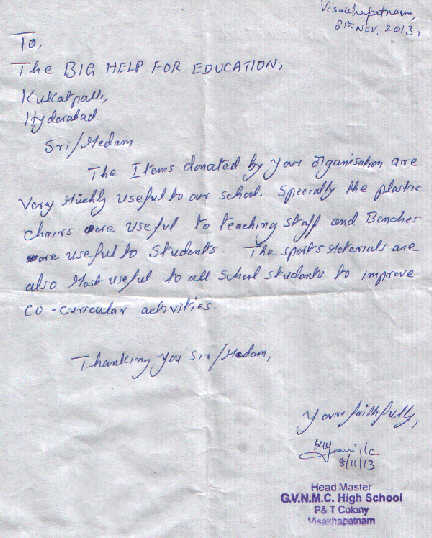 Visakhapatnam,
8th Nov, 2013,
To,
The BIG HELP FOR EDUCATION,
Kukatpalli,
Hyderabad
Sri/Medam
The Items donated by your organisation are
Very Muchly useful to our school. Specially the plastic
chairs are useful to teaching staff and Benches
are useful to students. The sports Materials are
also Most useful to all School students to improve
co-curricular activities.
Thanking you Sir/Medam,
Yours faithfully,
8/11/13
Head Master
G.V.N.M.C. High School
P&T Colony
Visakhapatnam